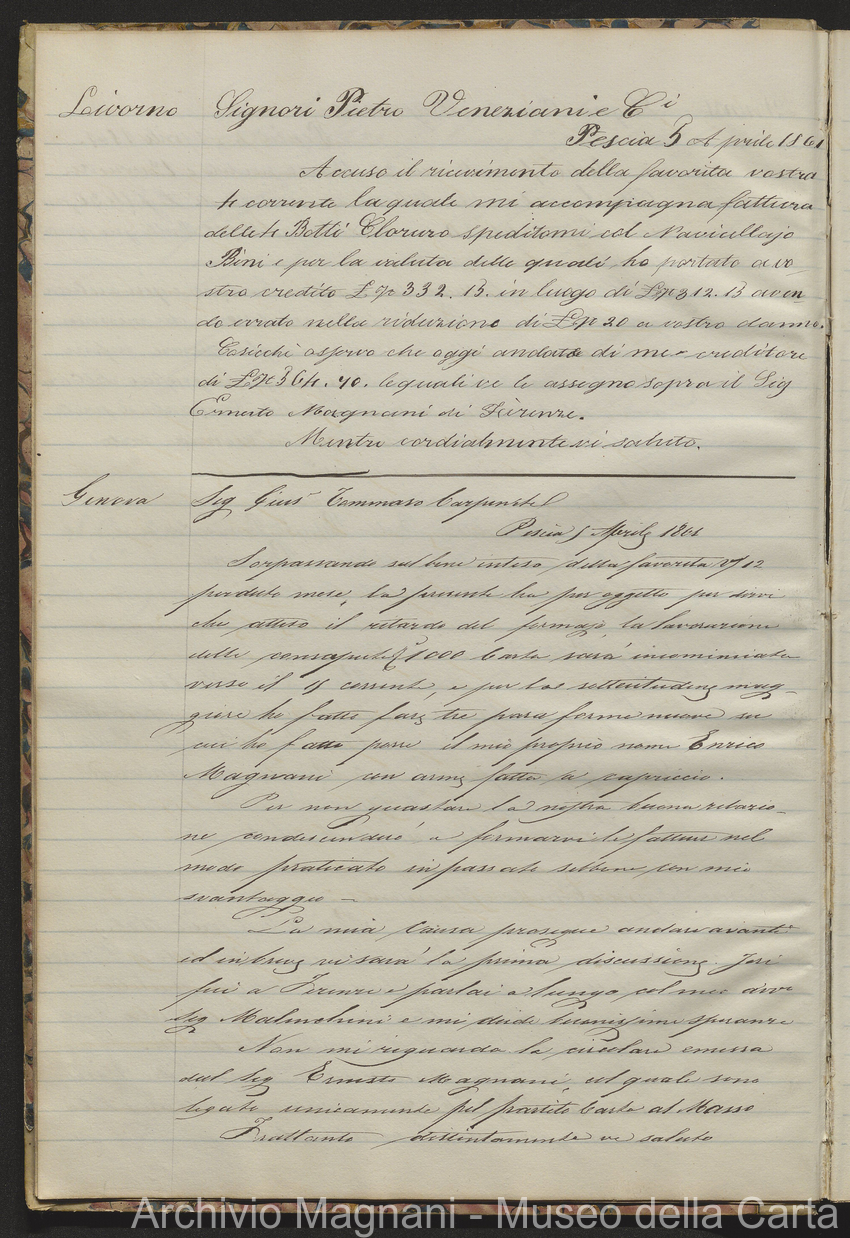 Livorno Signori Pietro Veneziani e Ci
Pescia 5 Aprile 1861
Accuso il ricevimento della favorita vostra
4 corrente la quale mi accompagna fattura
delle 4 Botti Cloruro speditemi col Navicellajo
Bini e per la valuta delle quali ho portato a vo-
stro credito £ 332. 13. in luogo di £ 312. 13 aven-
do errato nella riduzione di £ 20 a vostro danno.
Cosicchè osservo che oggi andate di me creditore
di £ 364. 70. le quali ve le assegno sopra il Sig
Ernesto Magnani di Firenze.
Mentre cordialmente vi saluto.
Genova Sig Gius Tommaso Carpenstel
Pescia 5 Aprile 1861
Sorpassando sul bene inteso della favorita 12
perduto mese, la presente ha per oggetto per dirvi
che atteso il ritardo del formajo, la lavorazione
delle consapute 1000 Carta sarà incominciata
verso il 15 corrente, e per sollecitudine mag-
giore ho fatto fare tre para forme nuove su
cui ho fatto porre il mio proprio nome Enrico
Magnani con arme fatta a capriccio.
Per non guastare la nostra buona relazio-
ne condiscenderò a formarvi le fatture nel
modo praticato in passato sebbene con mio
svantaggio —
La mia Causa prosegue andare avanti
ed in breve vi sarà la prima discussione. Jeri
fui a Firenze e parlai a lungo col mio avv
Sig Malenchini e mi diede buonissime speranze
Non mi riguarda la circolare emessa
dal Sig Ernesto Magnani, col quale sono
legato unicamente pel partito Carte al Masso
Frattanto distintamente vi saluto
Archivio Magnani - Museo della Carta